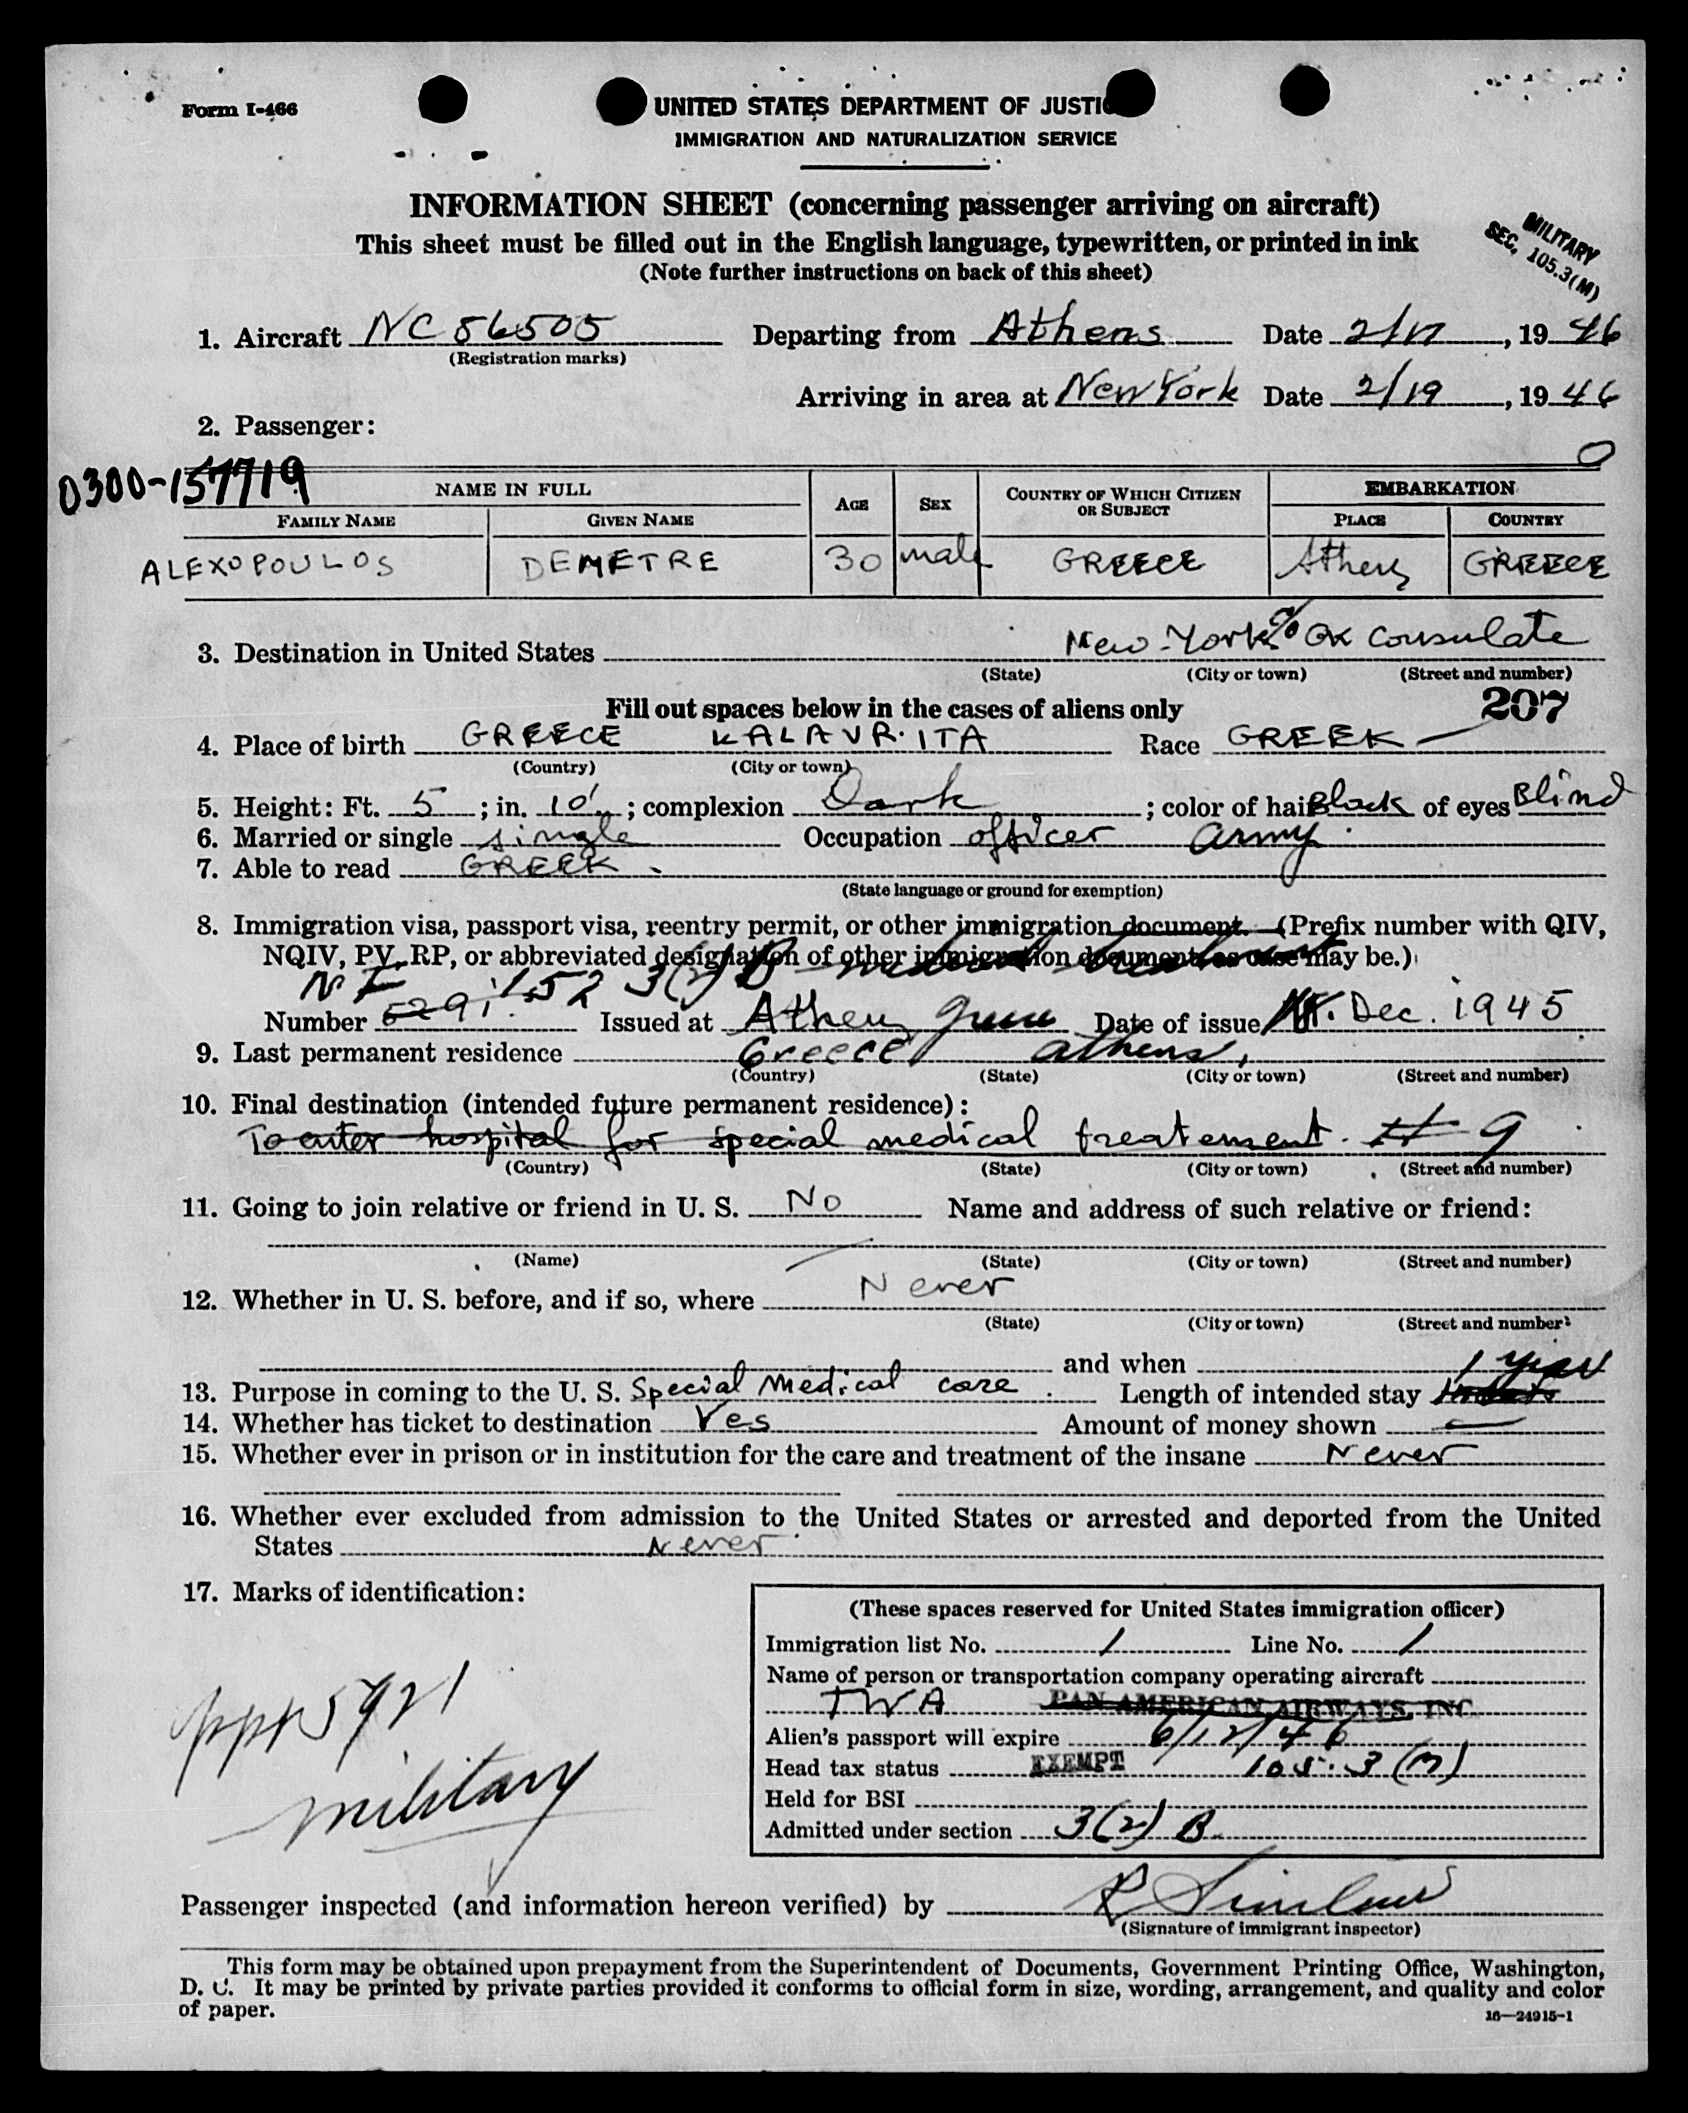 Form I-466
UNITED STATES DEPARTMENT OF JUSTIC
IMMIGRATION AND NATURALIZATION SERVICE
INFORMATION SHEET (concerning passenger arriving on aircraft)
This sheet must be filled out in the English language, typewritten, or printed in ink
(Note further instructions on back of this sheet)
MILITARY
SEC. 105.3(M)
1. Aircraft NC 86505 Departing from Athens Date 2/17, 1946
(Registration marks)
Arriving in area at New York Date 2/19, 1946
2. Passenger:
0
0300-157719
NAME IN FULL AGE SEX COUNTRY OF WHICH CITIZEN OR SUBJECT EMBARKATION
FAMILY NAME GIVEN NAME PLACE COUNTRY
ALEXOPOULOS DEMETRE 30 male GREECE Athens GREECE
3. Destination in United States New-York % GK Consulate
(State) (City or town) (Street and number)
207
Fill out spaces below in the cases of aliens only
4. Place of birth GREECE KALAVR.ITA Race GREEK
(Country) (City or town)
5. Height: Ft. 5; in. 10'; complexion Dark; color of hair Black of eyes Blind
6. Married or single single Occupation officer army.
7. Able to read GREEK.
(State language or ground for exemption)
8. Immigration visa, passport visa, reentry permit, or other immigration document. (Prefix number with QIV,
NQIV, PV, RP, or abbreviated designation of other immigration document as case may be.)
3(2) B medical treatment
Number 5291 152 Issued at Athens Greece Date of issue Dec. 1945
9. Last permanent residence Greece athens,
(Country) (State) (City or town) (Street and number)
10. Final destination (intended future permanent residence):
To enter hospital for special medical treatement. # 9
(Country) (State) (City or town) (Street and number)
11. Going to join relative or friend in U. S. No Name and address of such relative or friend:
(Name) (State) (City or town) (Street and number)
12. Whether in U. S. before, and if so, where Never
(State) (City or town) (Street and number)
and when
1 year
13. Purpose in coming to the U. S. Special Medical care. Length of intended stay
14. Whether has ticket to destination Yes Amount of money shown —
15. Whether ever in prison or in institution for the care and treatment of the insane Never
16. Whether ever excluded from admission to the United States or arrested and deported from the United
States Never
17. Marks of identification:
ppt 5921
military
(These spaces reserved for United States immigration officer)
Immigration list No. 1 Line No. 1
Name of person or transportation company operating aircraft
TWA PAN AMERICAN AIRWAYS, INC.
Alien's passport will expire 6/12/46
Head tax status EXEMPT 105.3(m)
Held for BSI
Admitted under section 3(2) B.
Passenger inspected (and information hereon verified) by R Sinclair
(Signature of immigrant inspector)
This form may be obtained upon prepayment from the Superintendent of Documents, Government Printing Office, Washington,
D. C. It may be printed by private parties provided it conforms to official form in size, wording, arrangement, and quality and color
of paper.
16—24915-1